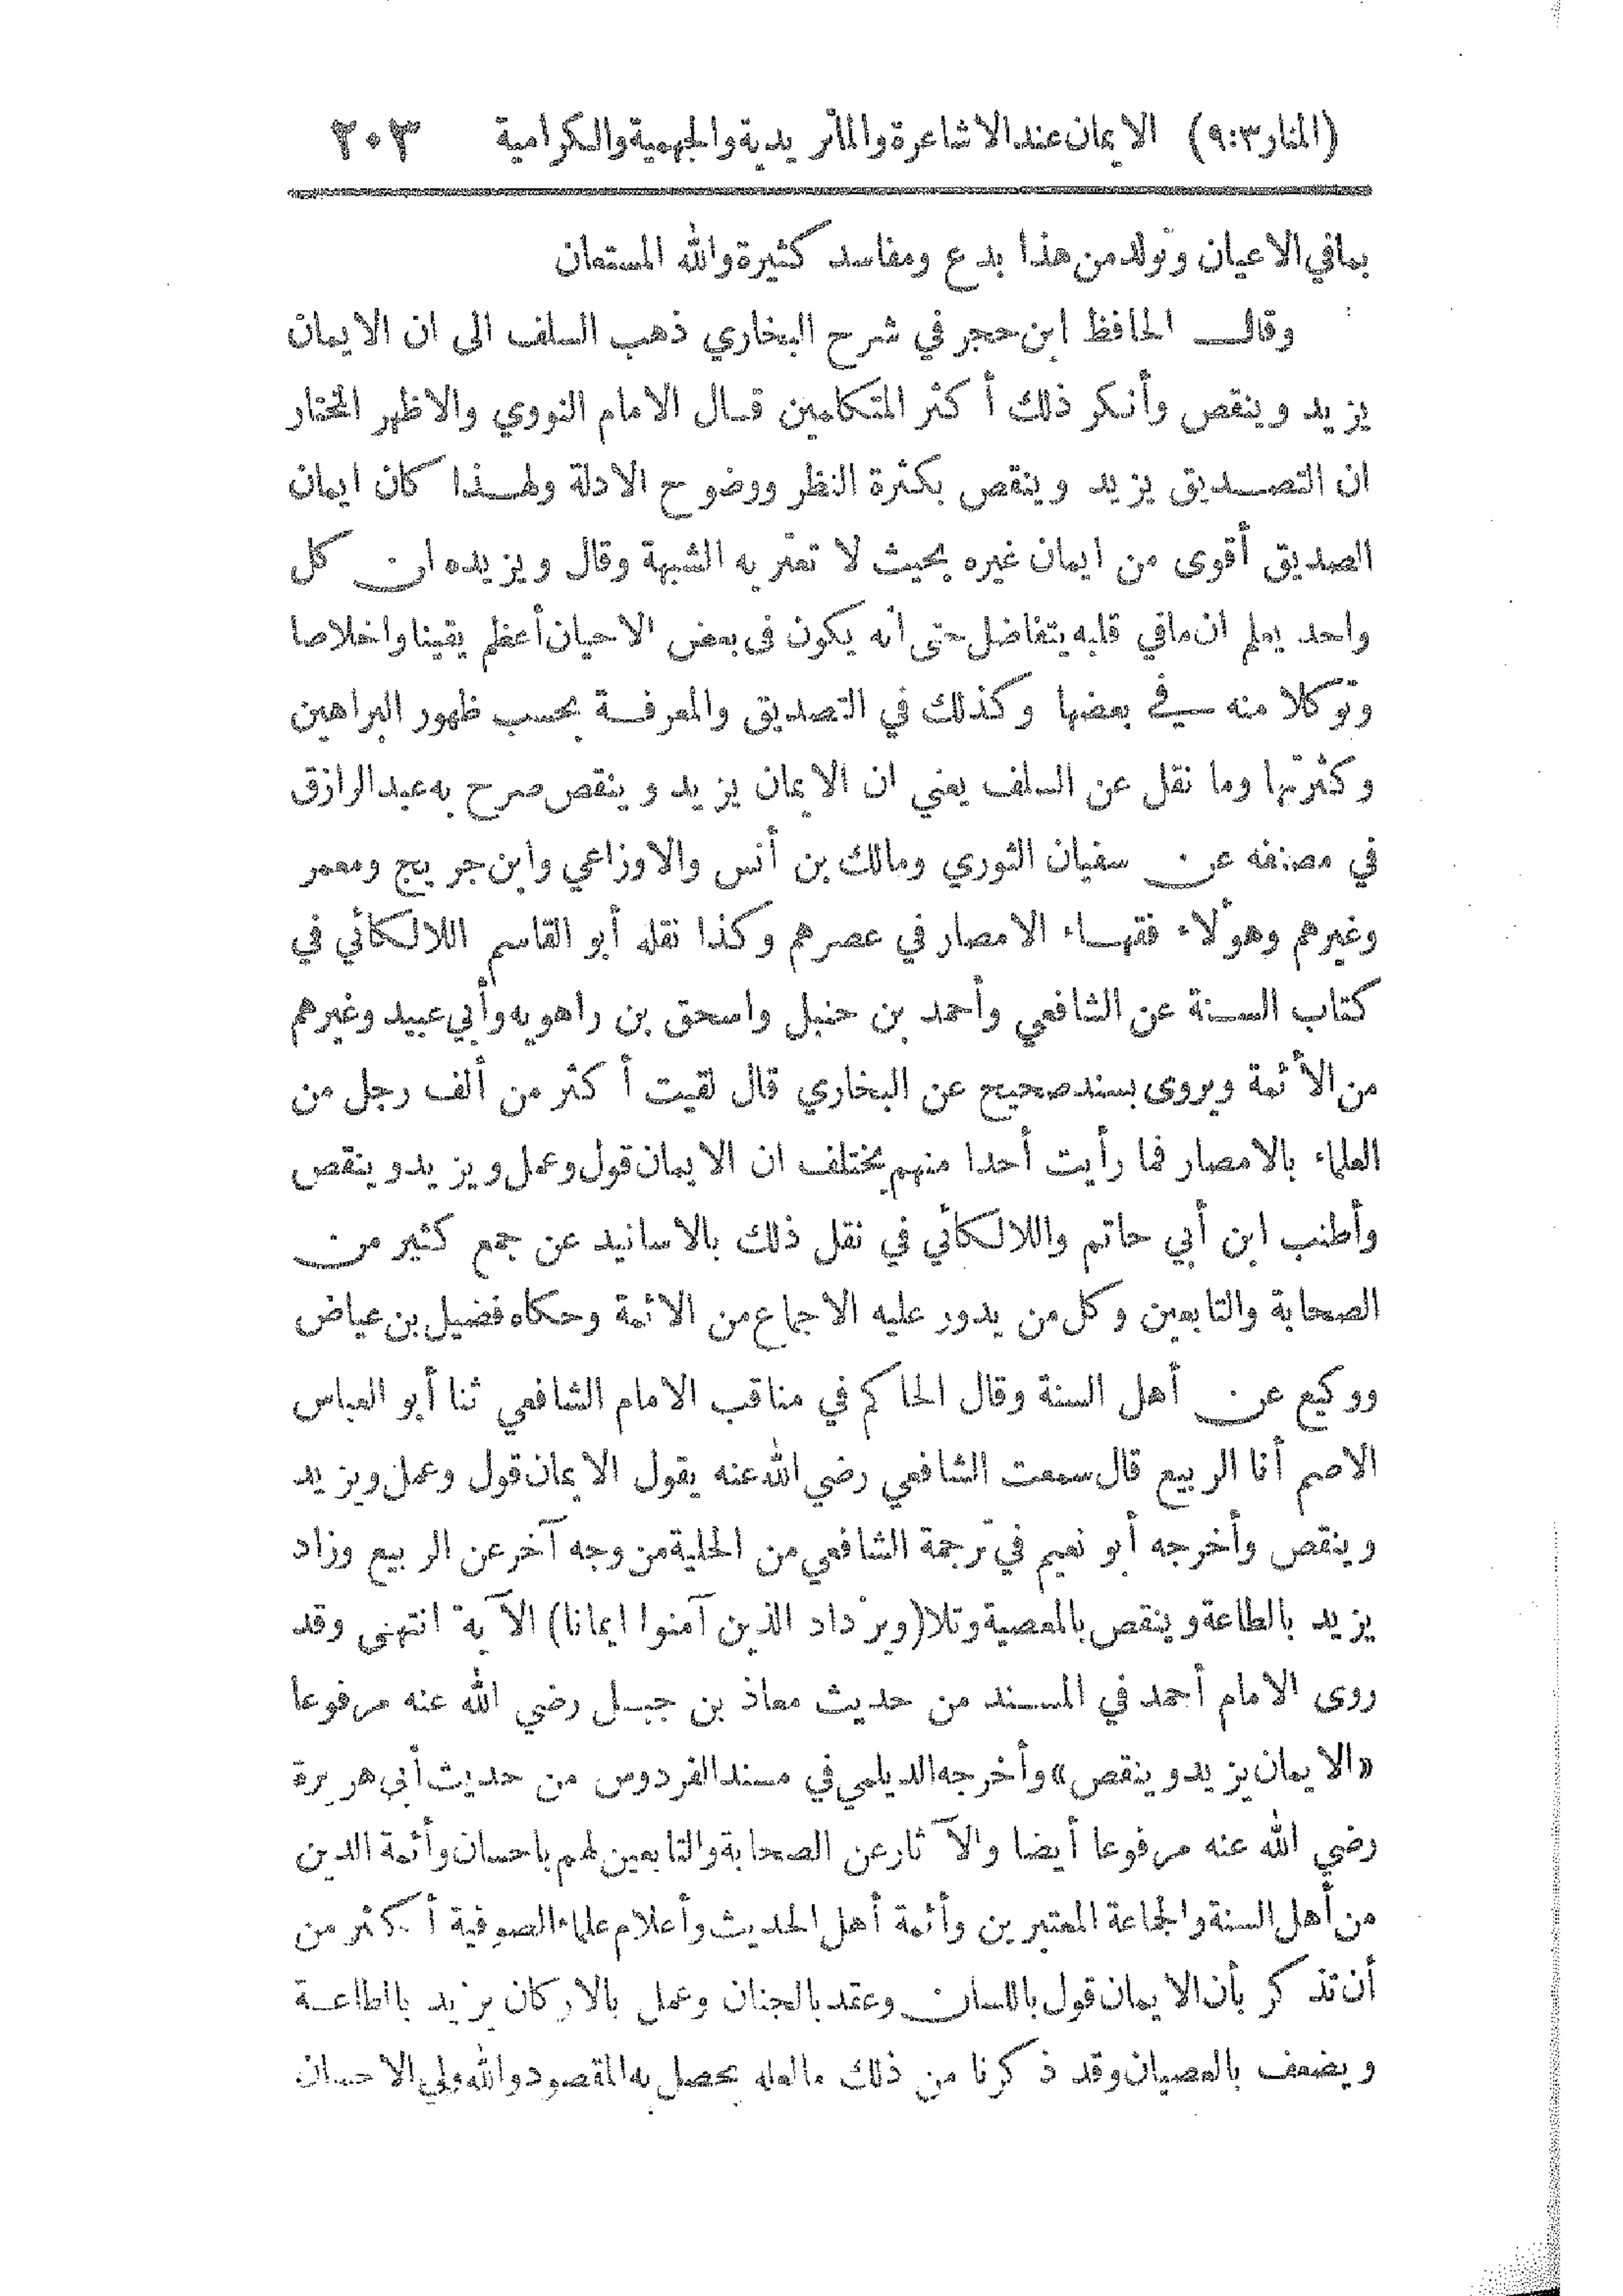 (المنار ٣ : ٩) الايمان عند الاشاعرة والماتريدية والجهمية والكرامية ٢٠٣
بما في الاعيان وتولد من هذا بدع ومفاسد كثيرة والله المستعان
وقال الحافظ ابن حجر في شرح البخاري ذهب السلف الى ان الايمان
يزيد وينقص وأنكر ذلك أكثر المتكلمين قال الامام النووي والاظهر المختار
ان التصديق يزيد وينقص بكثرة النظر ووضوح الادلة ولهذا كان ايمان
الصديق أقوى من ايمان غيره بحيث لا تعتريه الشبهة وقال ويزيده ان كل
واحد يعلم ان ما في قلبه يتفاضل حتى انه يكون في بعض الاحيان أعظم يقينا واخلاصا
وتوكلا منه في بعضها وكذلك في التصديق والمعرفة بحسب ظهور البراهين
وكثرتها وما نقل عن السلف يعني ان الايمان يزيد وينقص صرح به عبد الرازق
في مصنفه عن سفيان الثوري ومالك بن أنس والاوزاعي وابن جريج ومعمر
وغيرهم وهؤلاء فقهاء الامصار في عصرهم وكذا نقله أبو القاسم اللالكائي في
كتاب السنة عن الشافعي وأحمد بن حنبل واسحق بن راهويه وأبي عبيد وغيرهم
من الأئمة ويروى بسند صحيح عن البخاري قال لقيت أكثر من ألف رجل من
العلماء بالامصار فما رأيت أحدا منهم يختلف ان الايمان قول وعمل ويزيد وينقص
وأطنب ابن أبي حاتم واللالكائي في نقل ذلك بالاسانيد عن جمع كثير من
الصحابة والتابعين وكل من يدور عليه الاجماع من الائمة وحكاه فضيل بن عياض
ووكيع عن أهل السنة وقال الحاكم في مناقب الامام الشافعي ثنا أبو العباس
الاصم أنا الربيع قال سمعت الشافعي رضي الله عنه يقول الايمان قول وعمل ويزيد
وينقص وأخرجه أبو نعيم في ترجمة الشافعي من الحلية من وجه آخر عن الربيع وزاد
يزيد بالطاعة وينقص بالمعصية وتلا (ويزداد الذين آمنوا ايمانا) الآية انتهى وقد
روى الامام أحمد في المسند من حديث معاذ بن جبل رضي الله عنه مرفوعا
«الايمان يزيد وينقص» وأخرجه الديلمي في مسند الفردوس من حديث أبي هريرة
رضي الله عنه مرفوعا أيضا والآثار عن الصحابة والتابعين لهم باحسان وأئمة الدين
من أهل السنة والجماعة المعتبرين وأئمة أهل الحديث وأعلام علماء الصوفية أكثر من
أن تذكر بأن الايمان قول باللسان وعقد بالجنان وعمل بالاركان يزيد بالطاعة
ويضعف بالعصيان وقد ذكرنا من ذلك ما لعله يحصل به المقصود والله ولي الاحسان